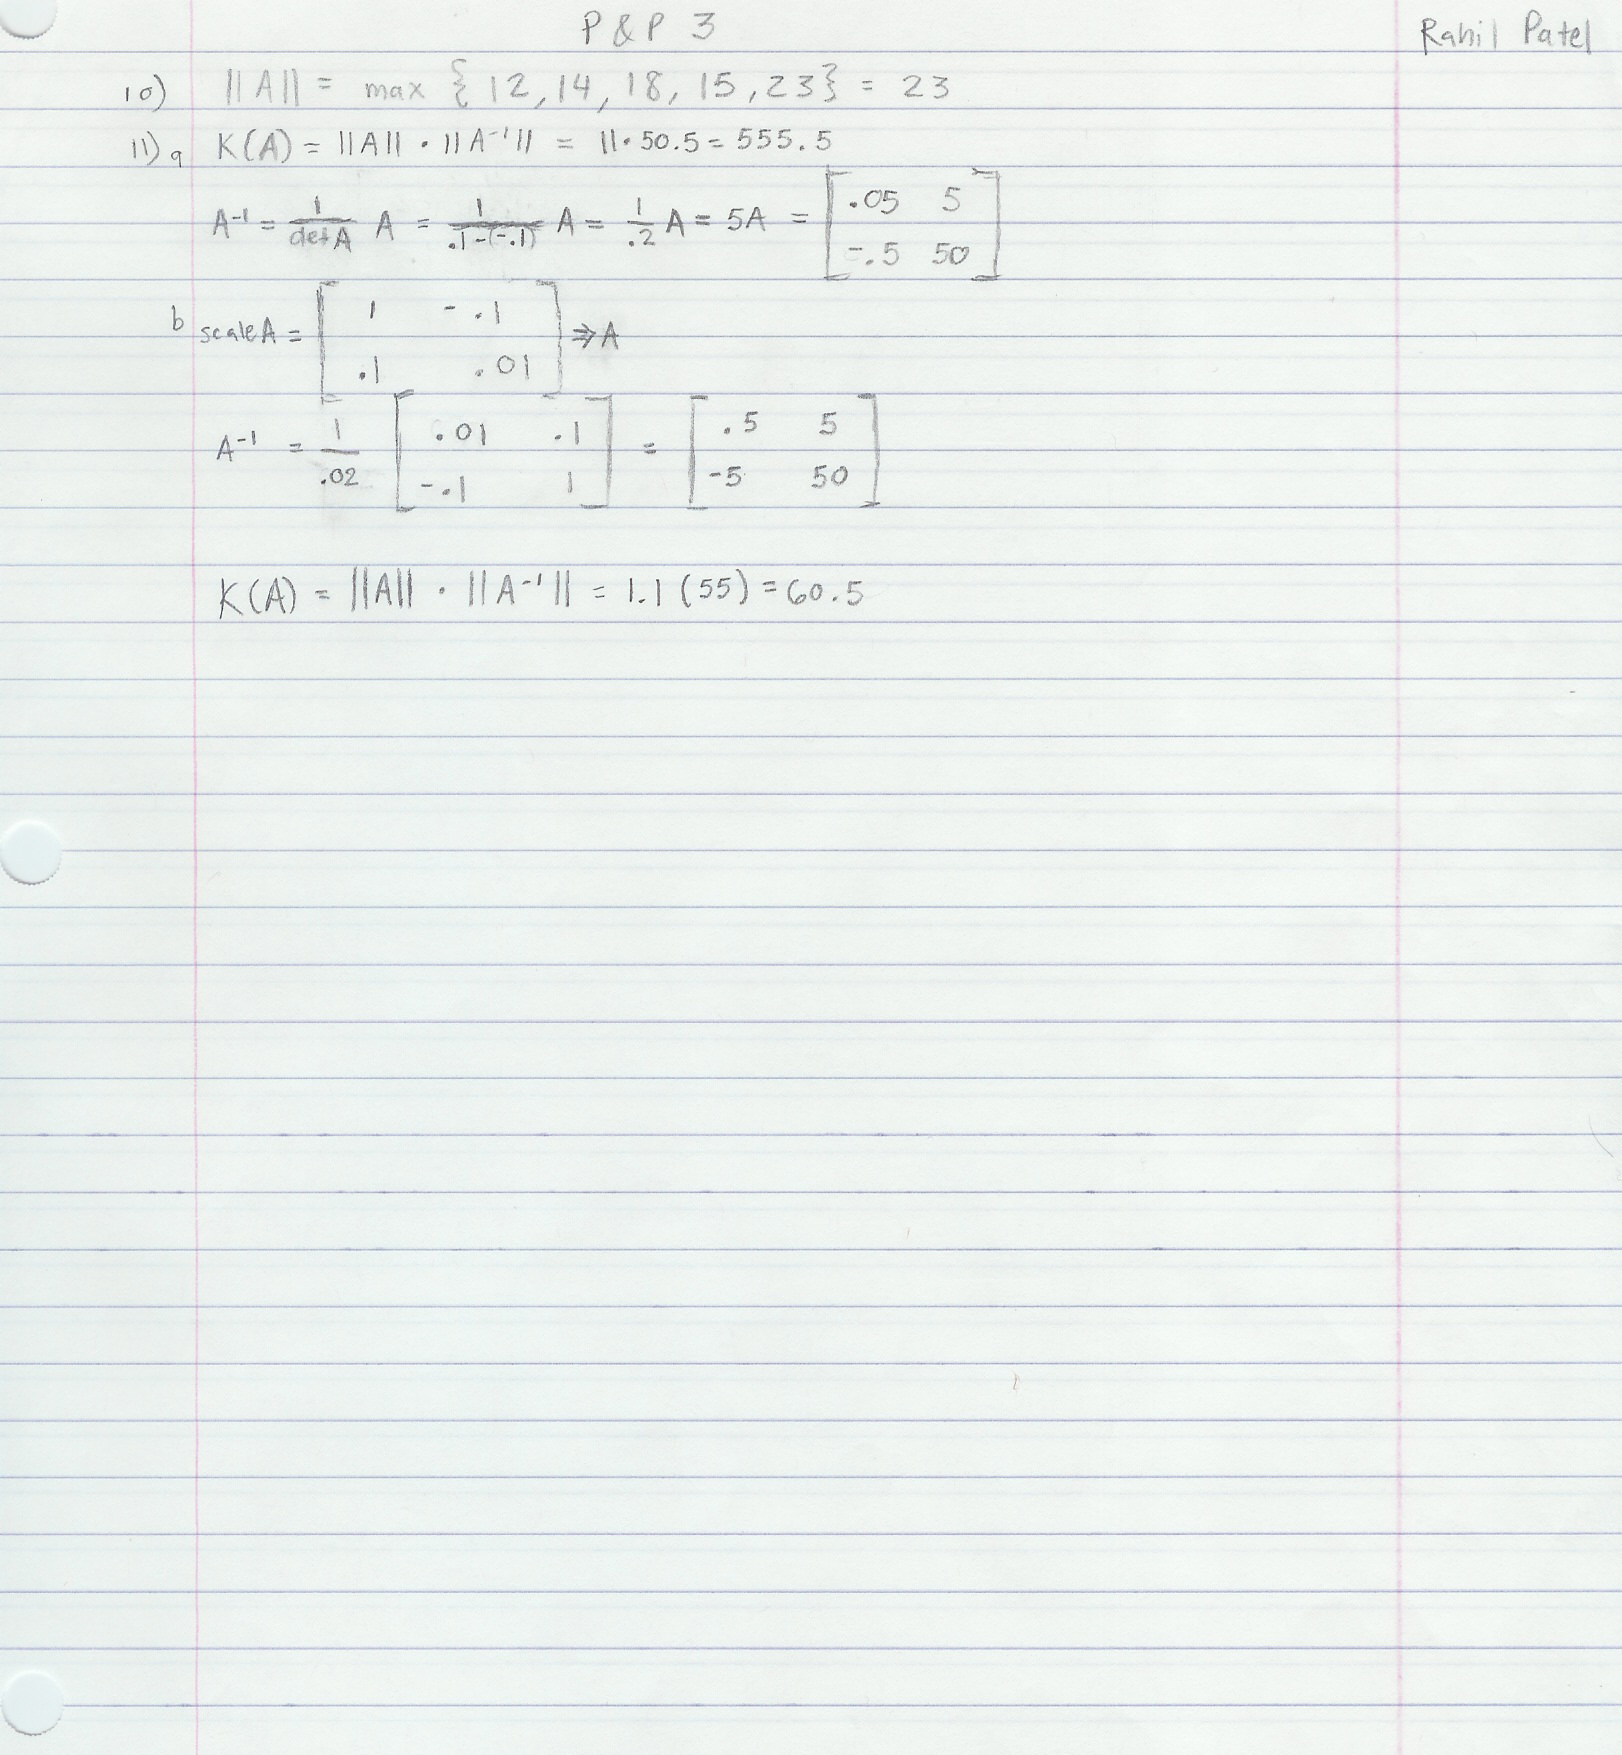 P & P 3
Rahil Patel
10) ||A|| = max {12, 14, 18, 15, 23} = 23
11) a K(A) = ||A|| · ||A⁻¹|| = 11 · 50.5 = 555.5
A⁻¹ = 1/detA A = 1/.1-(-.1) A = 1/.2 A = 5A = [.05 5
-.5 50]
b scale A = [1 -.1
.1 .01] ⇒ A
A⁻¹ = 1/.02 [.01 .1
-.1 1] = [.5 5
-5 50]
K(A) = ||A|| · ||A⁻¹|| = 1.1 (55) = 60.5